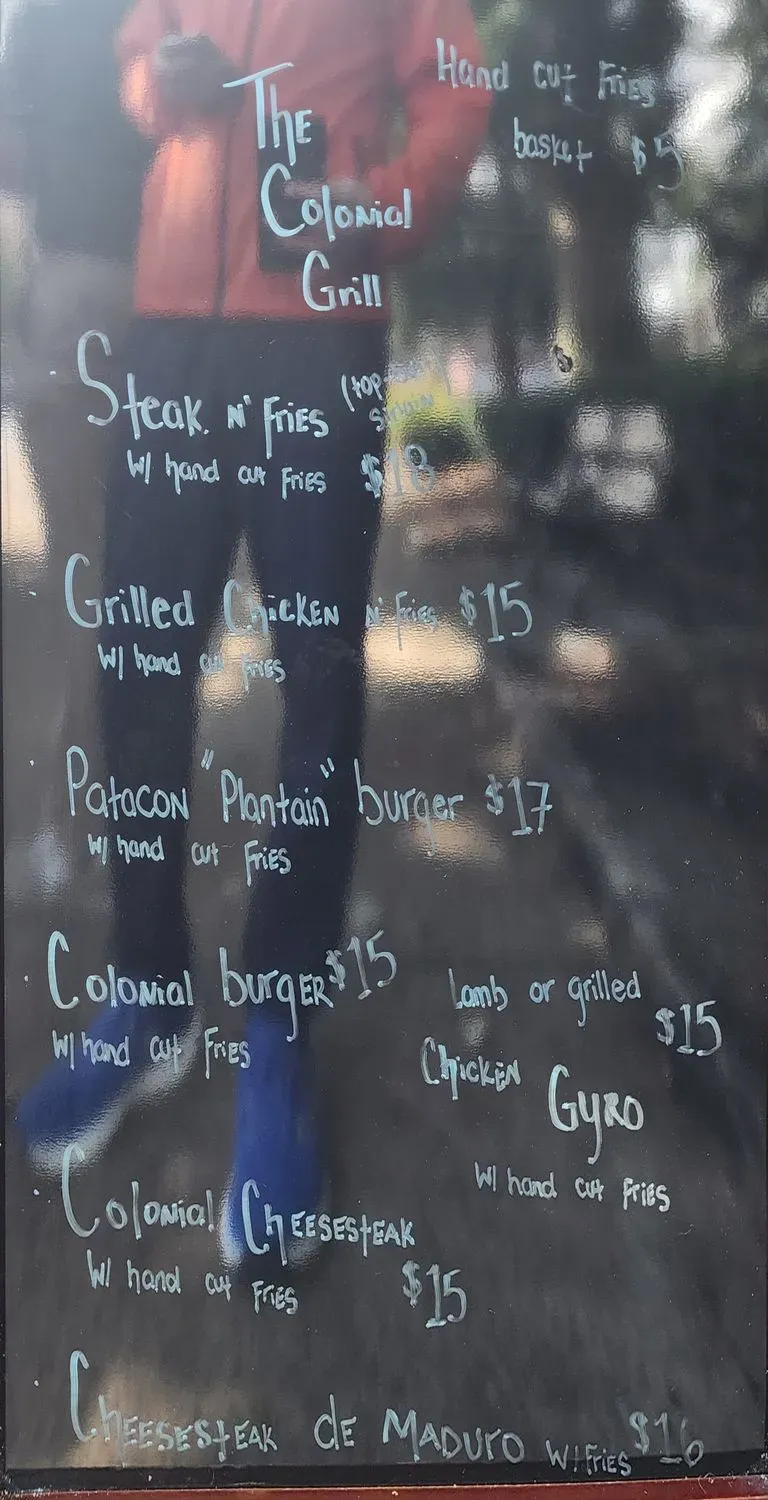 The
Colonial
Grill
Hand cut Fries
basket $5
Steak N' Fries (top
sirloin
W/ hand cut Fries $18
Grilled Chicken N' Fries $15
W/ hand cut Fries
Patacon "Plantain" burger $17
W/ hand cut Fries
Colonial burger $15
W/ hand cut Fries
Lamb or grilled
$15
Chicken Gyro
W/ hand cut Fries
Colonial Cheesesteak
W/ hand cut Fries $15
Cheesesteak de Maduro W/ Fries $16